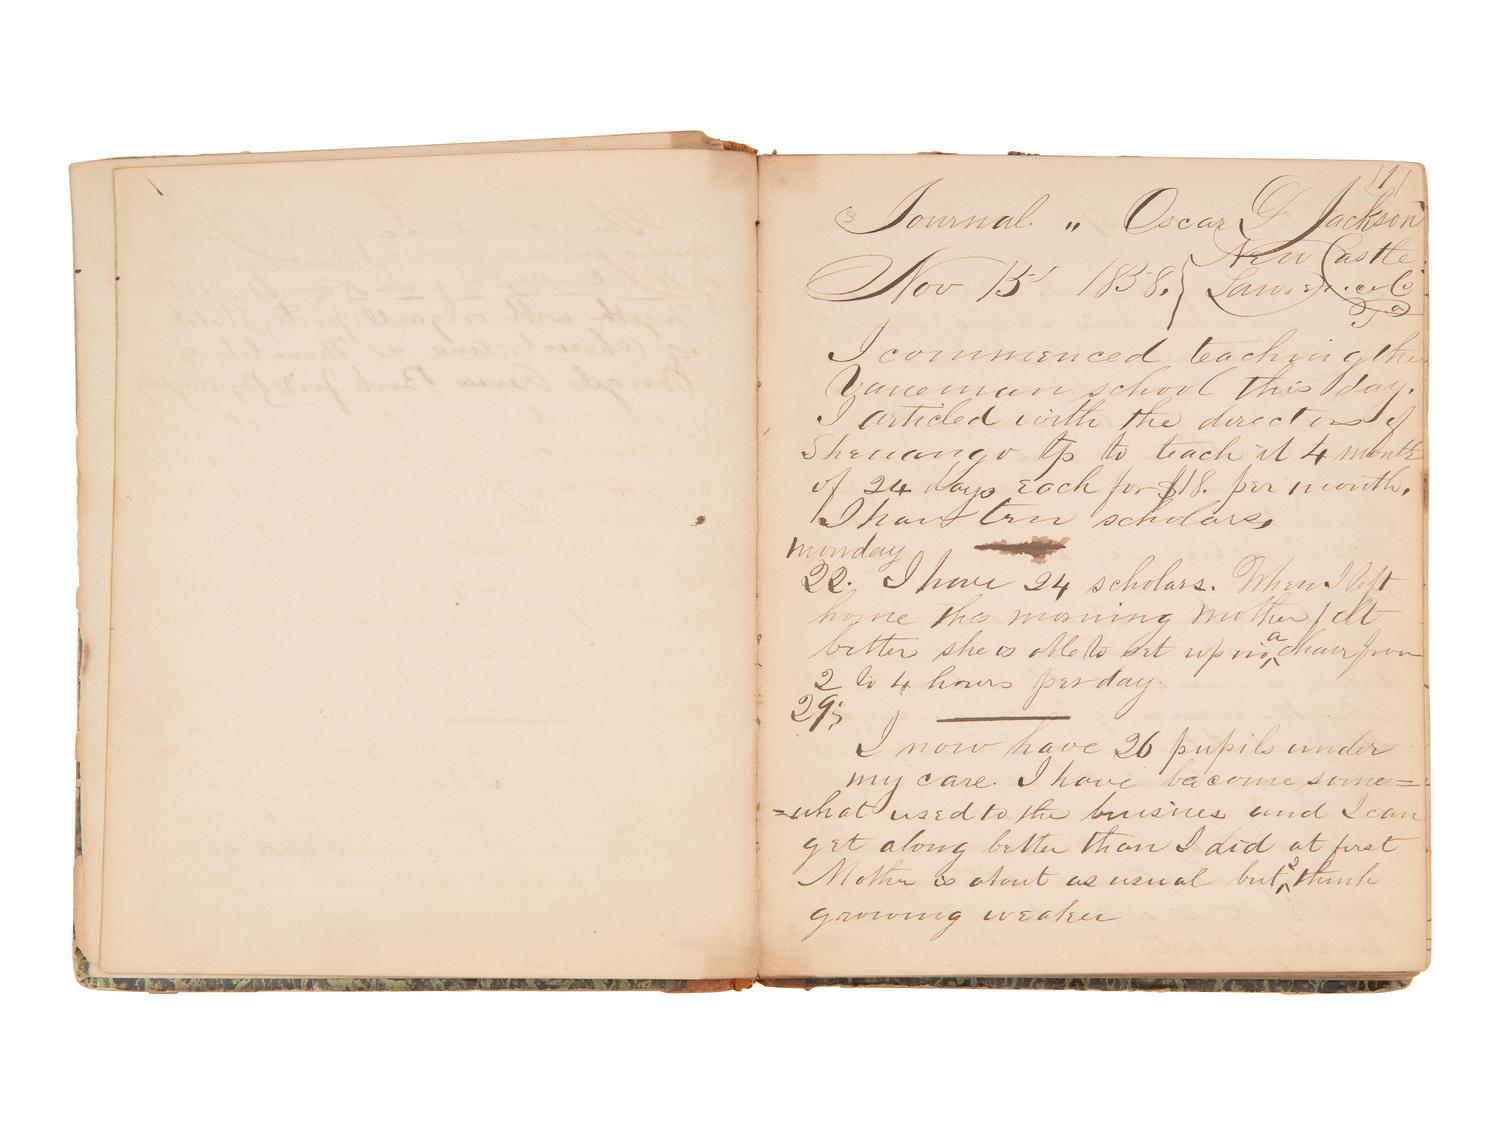 (1)
Journal. „ Oscar L Jackson
New Castle
Nov 15th 1858. Lawrence Co
Pa
I commenced teaching the
Vaneman school this day.
I articled with the directors of
Shenango Tp to teach it 4 months
of 24 days each for $18. per month.
I have ten scholars,
monday
22. I have 24 scholars. When I left
home this morning Mother felt
better she is able to set up in a chair from
2 to 4 hours per day.
29;
I now have 26 pupils under
my care. I have become some=
=what used to the buisness and I can
get along better than I did at first
Mother is about as usual but I think
growing weaker